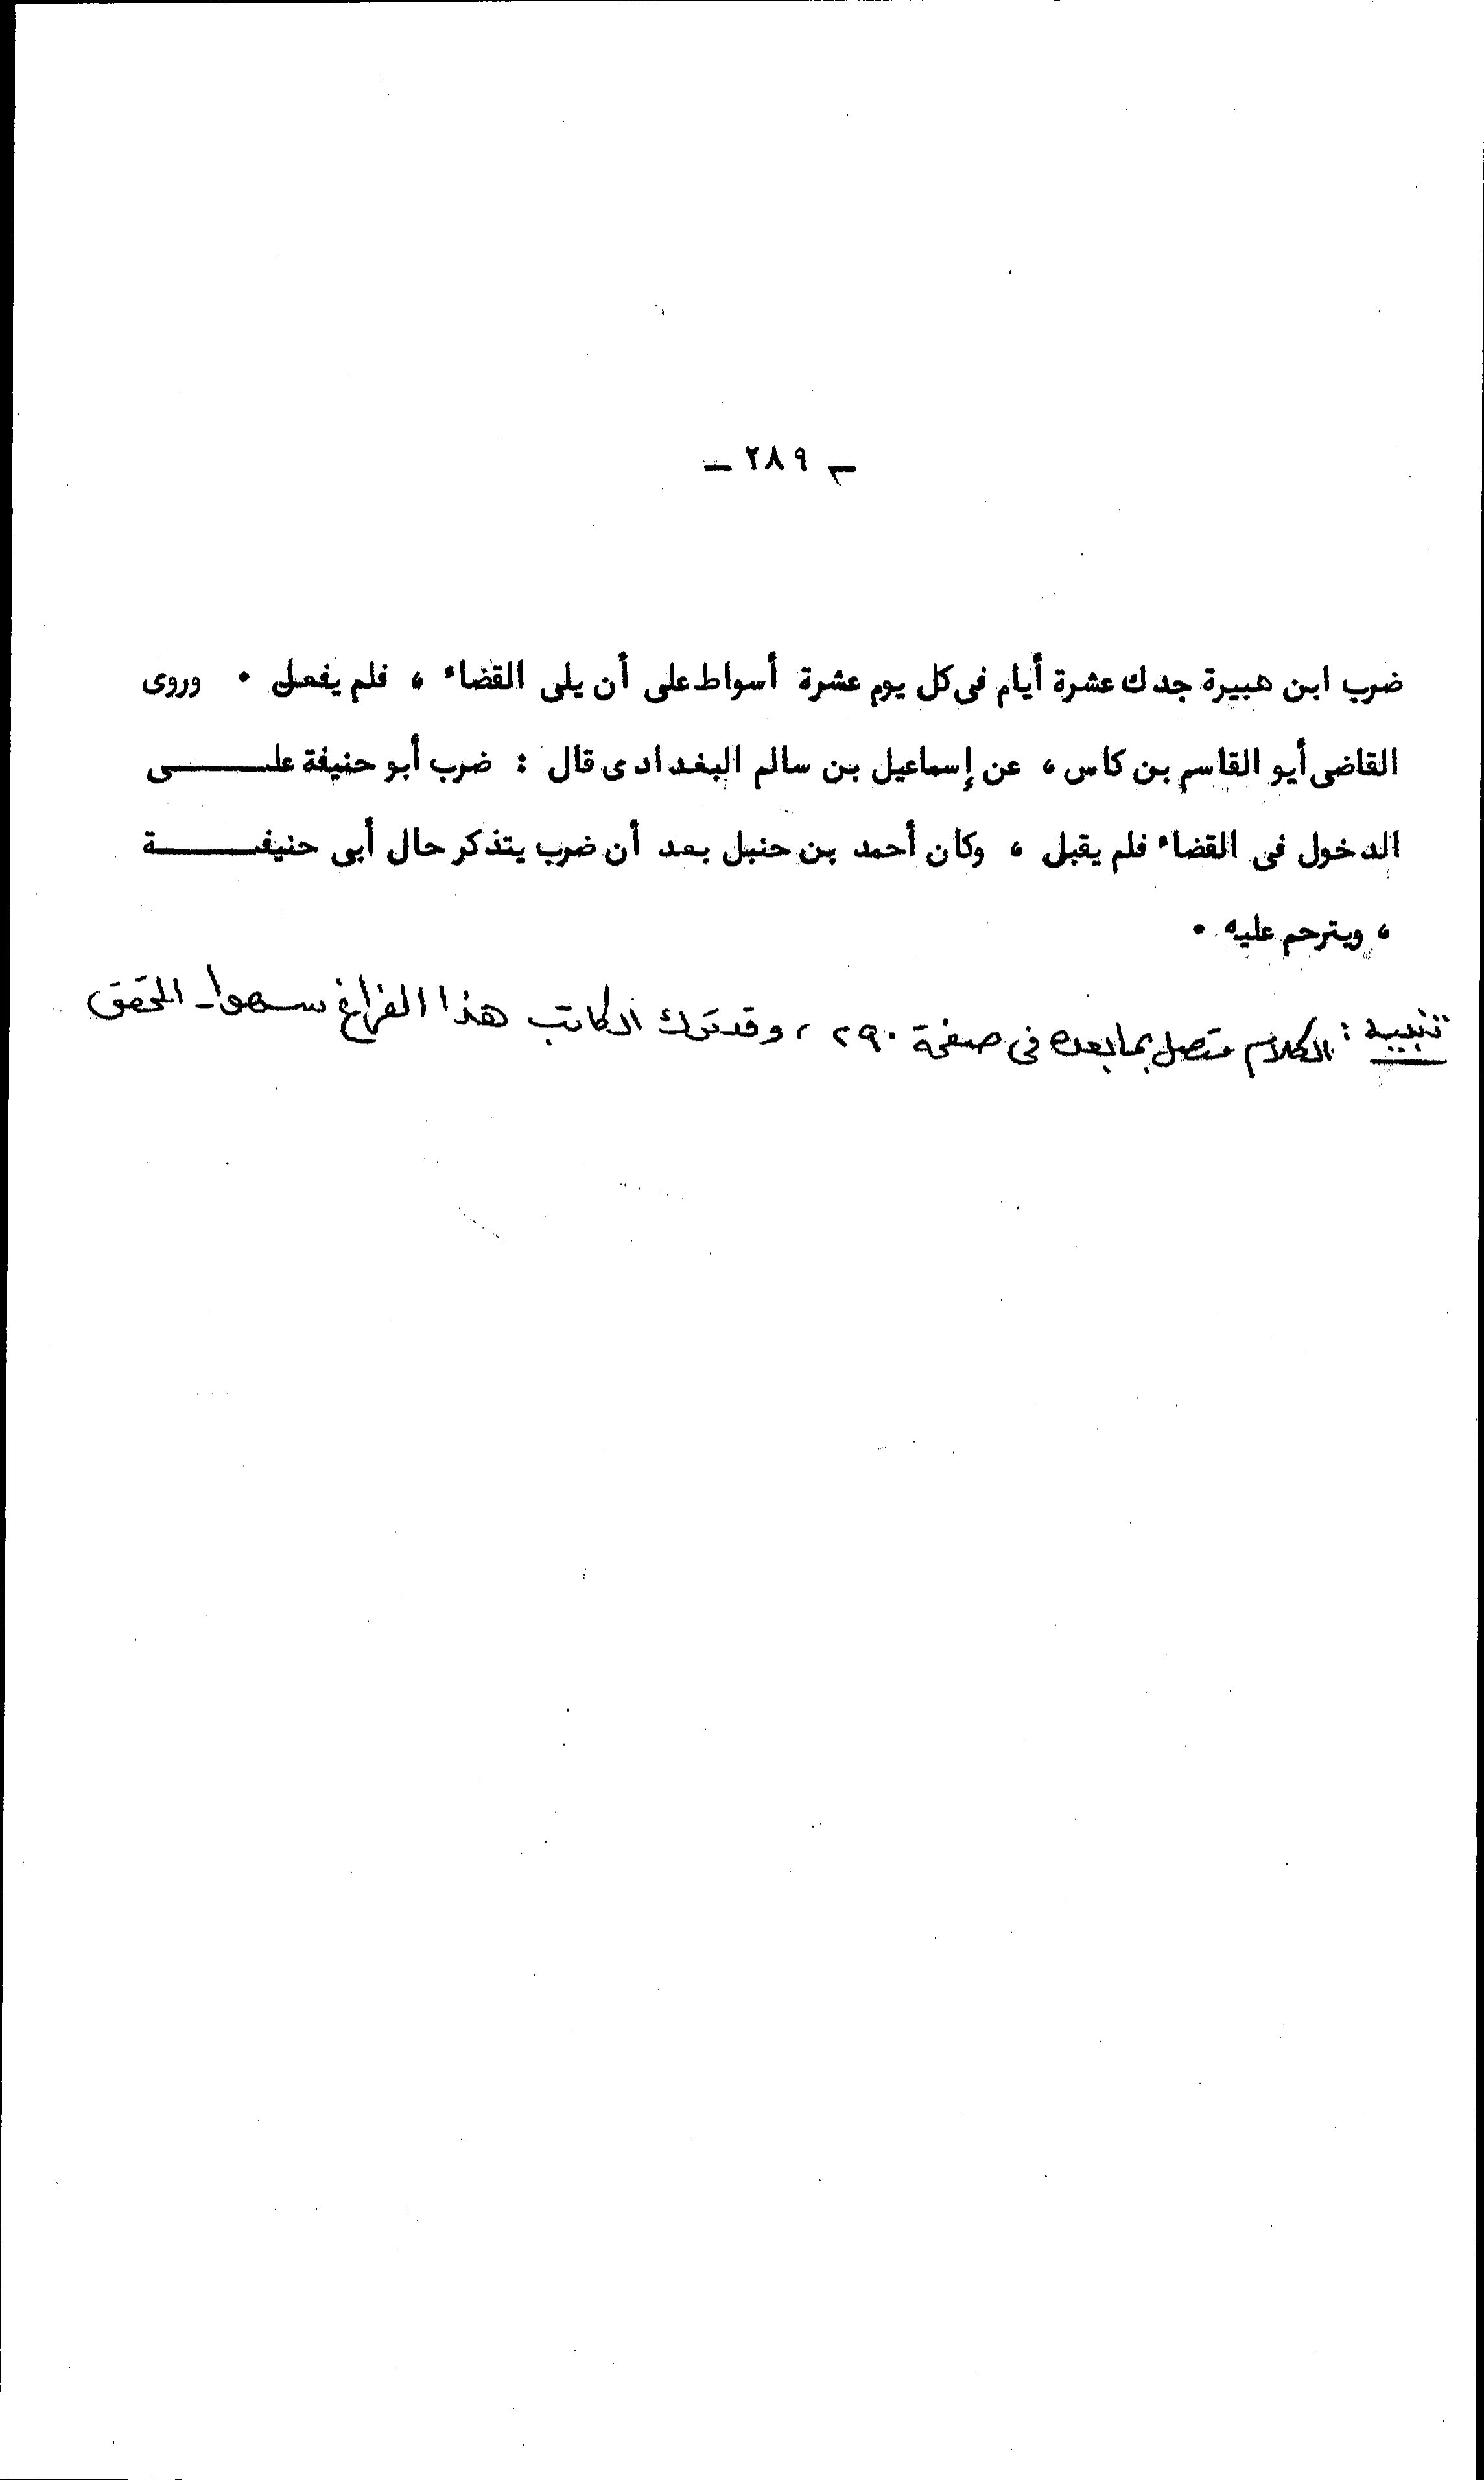 - ٢٨٩ -
ضرب ابن هبيرة جدك عشرة أيام فى كل يوم عشرة أسواط على أن يلى القضاء ، فلم يفعل . وروى
القاضى أيو القاسم بن كاس ، عن إسماعيل بن سالم البغدادى قال : ضرب أبو حنيفة علـــــــــى
الدخول فى القضاء فلم يقبل ، وكان أحمد بن حنبل بعد أن ضرب يتذكر حال أبى حنيفـــــــة
، ويترحم عليه .
تنبيه : الكلام متصل بما بعده فى صفحة ٢٩٠ ، وقد ترك الكاتب هذا الفراغ سهوا - المحقق